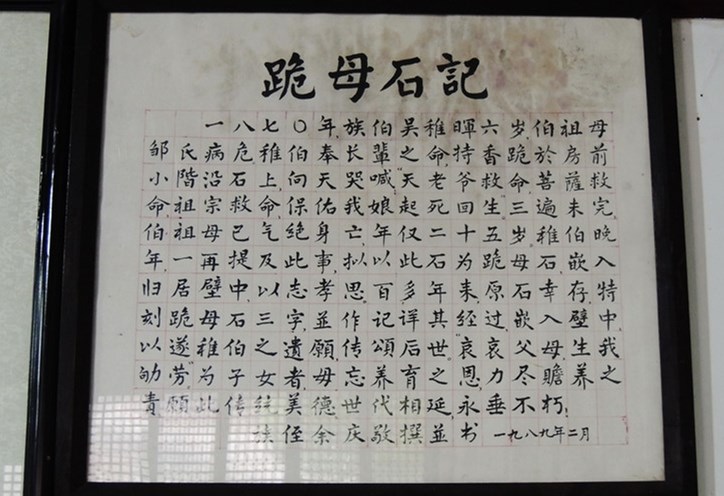 跪母石記
一八七〇年族伯吳稚暉六岁伯祖母
邹氏病危稚伯奉长輩之命持香跪於房前
小階沿石上向天哭喊天老爷救命菩薩救
命,祖宗救命,保佑我娘起死回生三遍未完,
伯祖母已气绝身亡,年仅二十五岁稚伯晚
年一再提及此事拟以此石为跪母石嵌入
归居壁中以志孝思,百多年来原石幸存,特
刻跪母石三字並作记詳其经过嵌入壁中
以遂稚伯之遺願传頌后世哀哀父母生我
劬劳,为子女者願毋忘养育之恩,尽力贍养之
責,願此传统美德世代相延永垂不朽!
族侄余庆敬撰並书 一九八九年二月